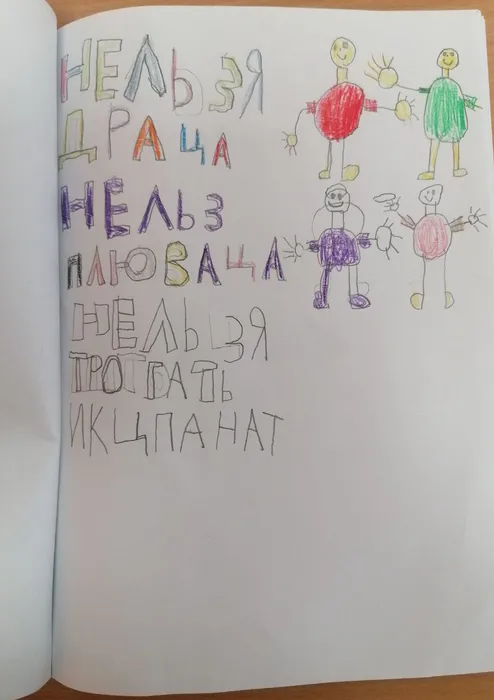 НЕЛЬЗЯ
ДРАЦА
НЕЛЬЗ
ПЛЮВАЦА
НЕЛЬЗЯ
ТРОГВАТЬ
ИКЦПАНАТ